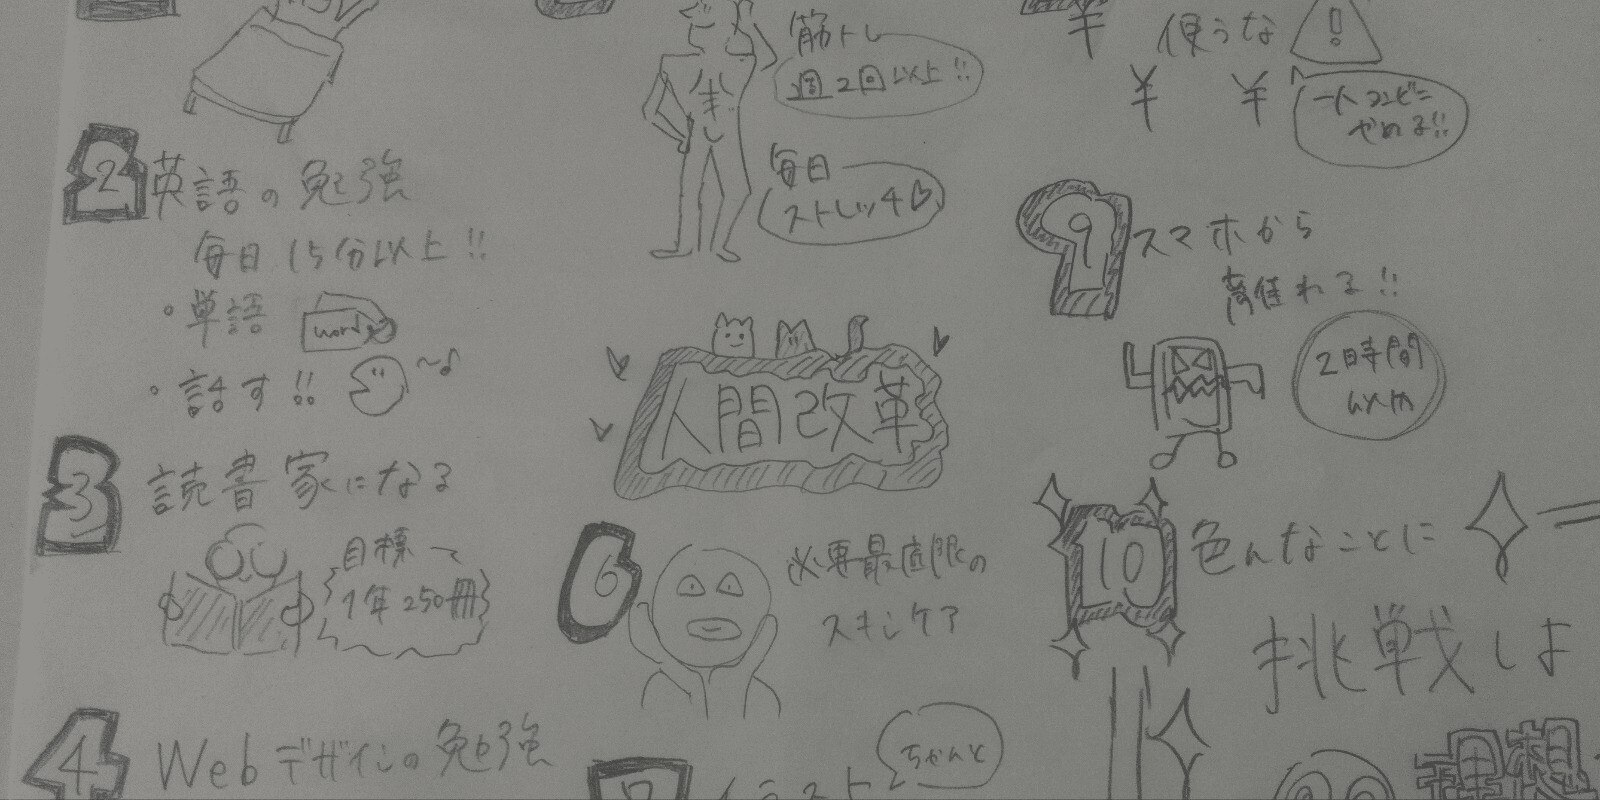 2 英語の勉強
毎日15分以上!!
・単語
word
・話す!!
3 読書家になる
目標
1年250冊
4 Webデザインの勉強
筋トレ
週2回以上!!
毎日
ストレッチ♡
人間改革
6 必要最低限の
スキンケア
イラスト
ちゃんと
使うな
!
¥
¥ ¥
コンビニ
やめる!!
9 スマホから
離れる!!
2時間
以内
10 色んなことに
挑戦しよ
理想